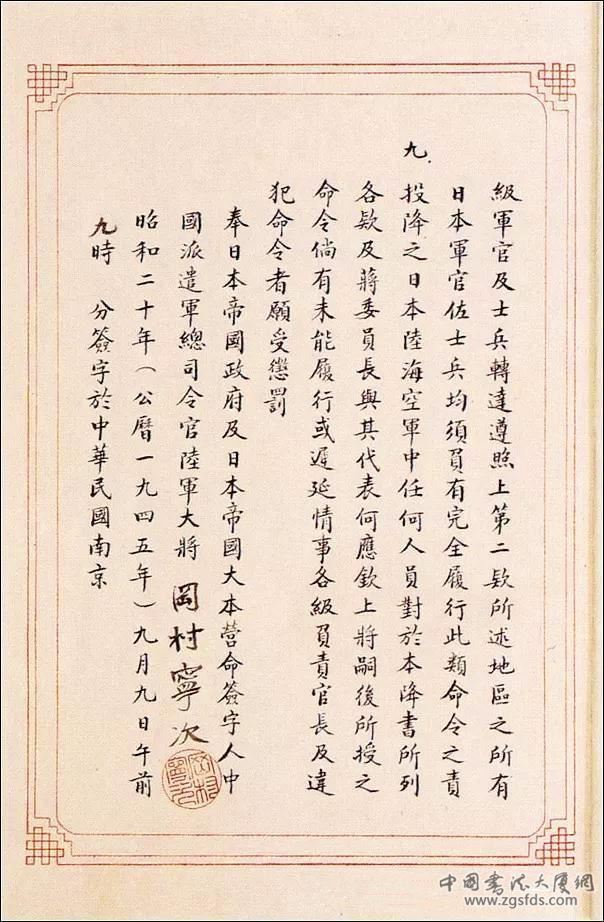 級軍官及士兵轉達遵照上第二欵所述地區之所有
日本軍官佐士兵均須負有完全履行此類命令之責
九、投降之日本陸海空軍中任何人員對於本降書所列
各欵及蔣委員長與其代表何應欽上將嗣後所授之
命令倘有未能履行或遲延情事各級負責官長及違
犯命令者願受懲罰
奉日本帝國政府及日本帝國大本營命簽字人中
國派遣軍總司令官陸軍大將 岡村寧次
昭和二十年(公曆一九四五年)九月九日午前
九時 分簽字於中華民國南京
岡村寧次
中國書法大廈網
www.zgsfds.com